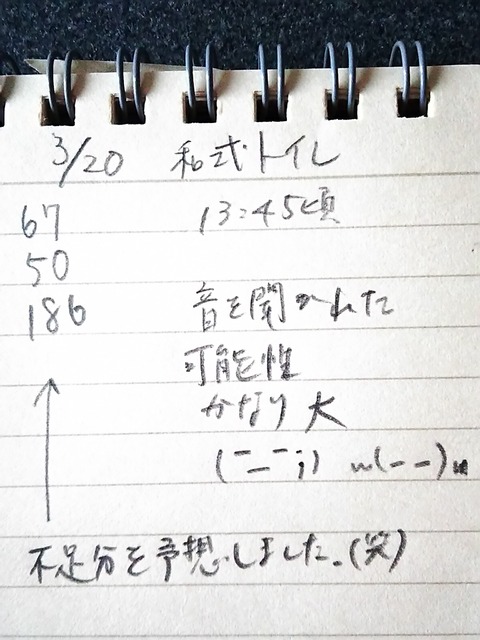 3/20 和式トイレ
67 13:45頃
50
186 音を聞かれた
可能性
かなり大
(ー_ー;) m(--)m
不足分を予想しました.(笑)